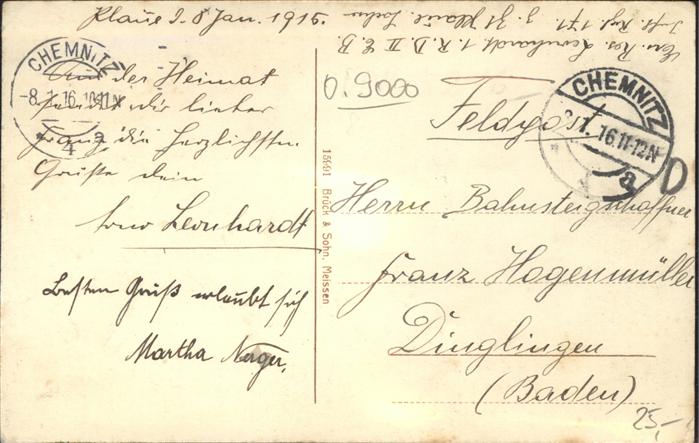 Klaue I. 8 Jan. 1916.
CHEMNITZ
-8.1.16. 10-11N
4 a
Aus der Heimat
sendet dir lieber
Franz die herzlichsten
Grüße dein
Leonhardt
Besten Gruß erlaubt sich
Martha Nerger.
13691 Brück & Sohn, Meissen
Leonhardt 1. R. D. II E. B.
0.9000
Feldpost
CHEMNITZ
8.1.16.11-12N
a
Herrn Bahnsteigschaffner
Franz Hogenmüller
Dinglingen
(Baden)
25,-